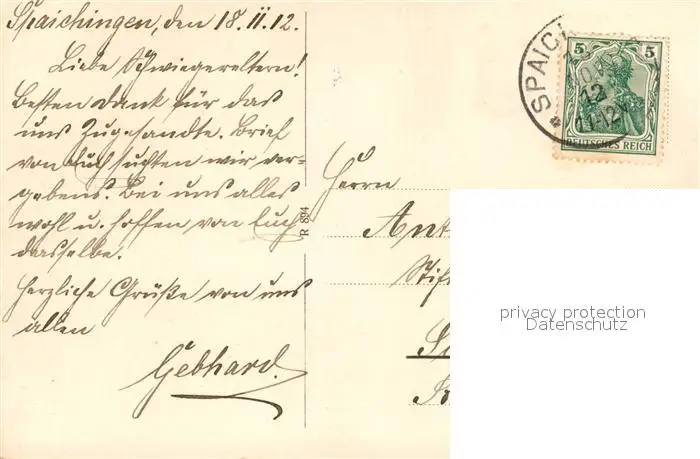 Spaichingen, den 18.II.12.
Liebe Schwiegereltern!
Besten Dank für das
uns Zugesandte. Brief
von Euch suchten wir ver-
gebens. Bei uns alles
wohl u. hoffen von Euch
dasselbe.
Herzliche Grüße von uns
allen
Gebhard.
R 894
* SPAICH
12
11-12V
5 5
DEUTSCHES REICH
Herrn
Ant
Stif
privacy protection
Datenschutz